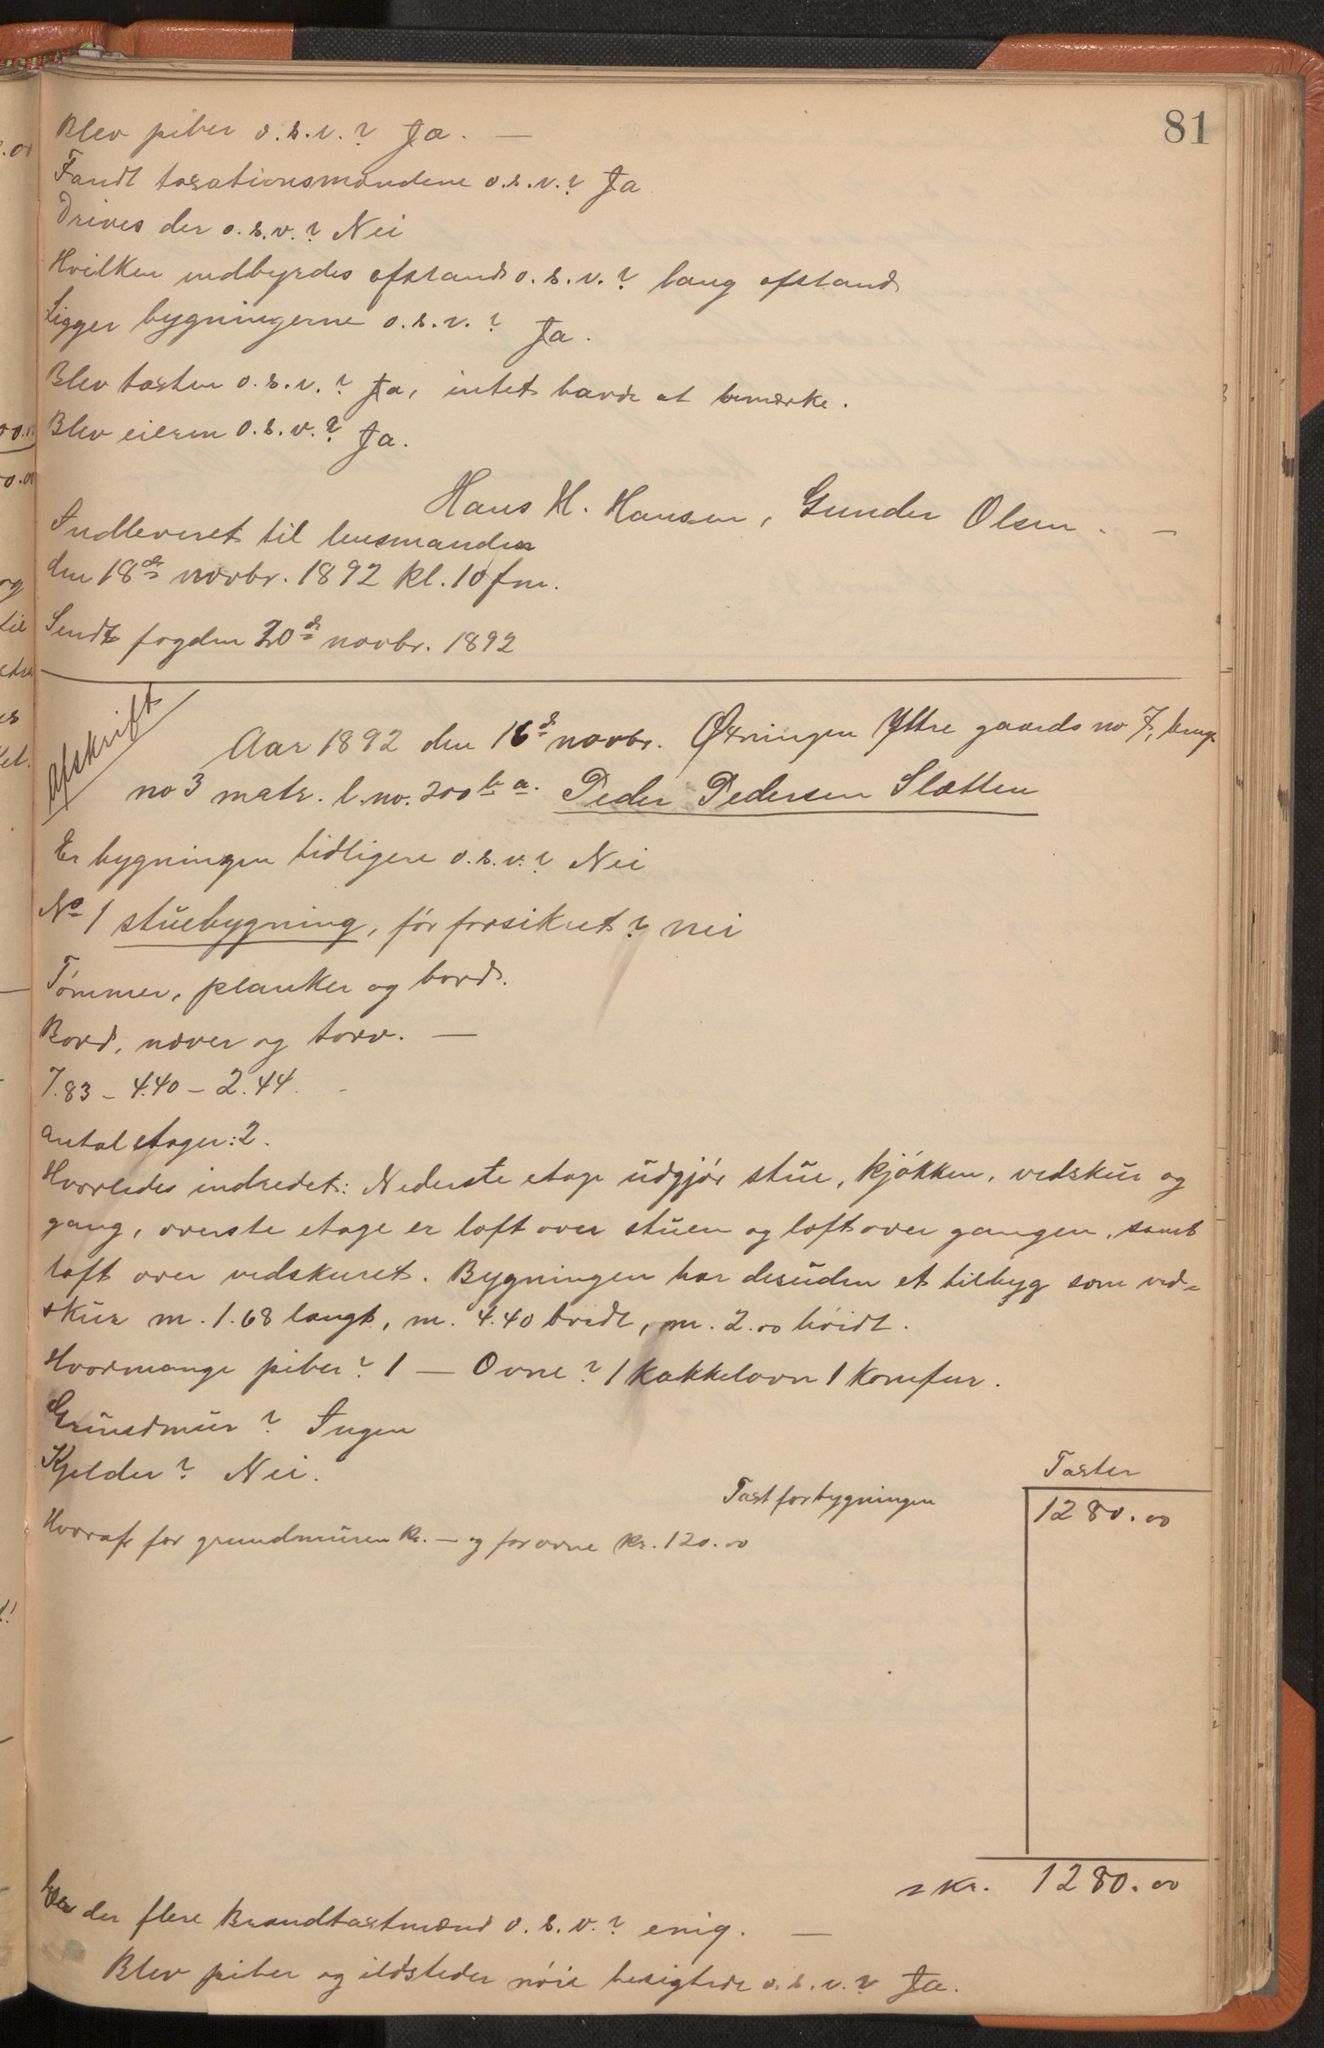 81
Blev piber o.s.v.? Ja. —
Fandt taxationsmændene o.s.v.? Ja
Drives der o.s.v.? Nei
Hvilken indbyrdes afstand o.s.v.? lang afstand
Ligger bygningerne o.s.v.? Ja.
Blev taxten o.s.v.? Ja, intet havde at bemærke.
Blev eieren o.s.v.? Ja.
Hans H. Hansen, Gunder Olsen. —
Indleveret til lensmanden
den 18de novbr. 1892 kl. 10 fm.
Sendt fogden 20de novbr. 1892
Afskrift
Aar 1892 den 16de novbr. Øxningen Yttre gaards no 7, brugs
no 3 matr. l. no. 200 b a. Peder Pedersen Slætten
Er bygningen tidligere o.s.v.? Nei
No 1 stuebygning, før forsikret? nei
Tømmer, planker og bord.
Bord, næver og torv. —
7.83 – 4.40 – 2.44.
Antal etager: 2.
Hvorledes indredet: Nederste etage udgjør stue, kjøkken, vedskur og
gang, øverste etage er loft over stuen og loft over gangen, samt
loft over vedskuret. Bygningen har desuden et tilbyg som ved-
skur m. 1.68 langt, m. 4.40 bredt, m. 2.00 høidt.
Hvormange piber? 1 — Ovne? 1 kakkelovn 1 komfur.
Grundmur? Ingen
Kjelder? Nei.
Taxter
Taxt for bygningen 1280.00
Hvoraf for grundmuren kr. — og for ovne kr. 120.00
kr. 1280.00
Er der flere Brandtaxtmænd o.s.v.? enig. —
Blev piber og ildsteder nøie besigtede o.s.v.? Ja.